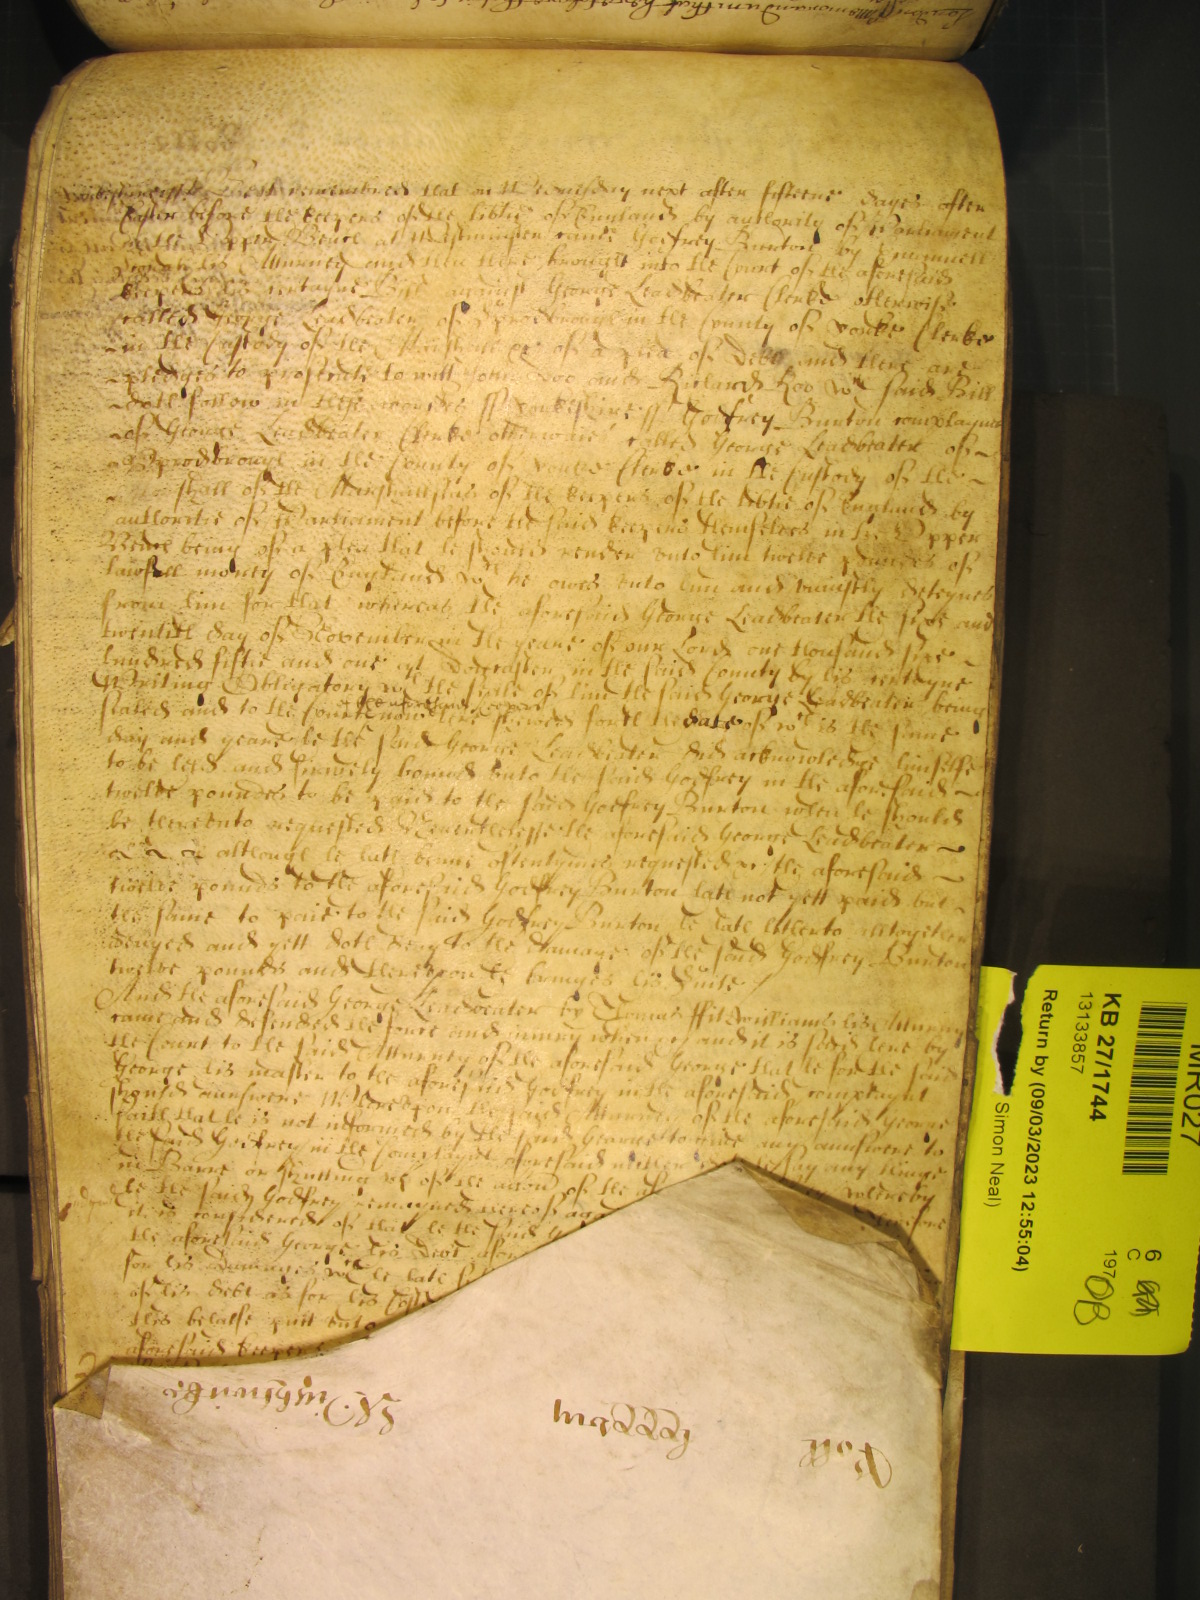 Bee it remembred that on Wednesday next after fifteene dayes after
Easter before the keepers of the lib̃tie of England by authority of Parliament
in the Upper Bench at Westminster came Godfrey Burton by Emanuell
his Atturney and then there brought into the Court of the aforesaid
keepers his certayne Bill against George Leadbeater Clerke otherwise
called George Leadbeater of Sprodbrough in the County of Yorke Clerke
in the Custody of the Marshall &c of a plea of debt and there are
pledges to prosecute to witt John Doo and Richard Roo wch said Bill
doth follow in these wordes ss Yorkeshire ss Godfrey Burton complaynes
of George Leadbeater Clerke otherwise called George Leadbeater of
Sprodbrough in the County of Yorke Clerke in the Custody of the
Marshall of the Marshallsies of the keepers of the lib̃tie of England by
authoritie of Parliament before the said keepers themselves in the Upper
Bench being of a plea that he should render unto him twelve poundes of
lawfull money of England wch he owes unto him and uniustly deteyneth
from him for that whereas the aforesaid George Leadbeater the sixe and
twentith day of November in the yeare of our Lord one thousand sixe
hundred fiftie and one att Doncaster in the said County by his certayne
Writing Obligatory wth the seale of him the said George Leadbeater being
sealed and to the Court of the aforesaid keepers now here shewed forth the date of wch is the same
day and yeare he the said George Leadbeater did acknowledge himselfe
to be held and firmely bound unto the said Godfrey in the aforesaid
twelve poundes to be paid to the said Godfrey Burton when he should
be thereunto requested Neverthelesse the aforesaid George Leadbeater
although he hath beene oftentymes requested &c the aforesaid
twelve pounds to the aforesaid Godfrey Burton hath not yett paid but
the same to paie to the said Godfrey Burton he hath hitherto alltogether
denyed and yett doth deny to the damage of the said Godfrey Burton
twelve pounds and thereupon he bringes his Suite
And the aforesaid George Leadbeater by Thomas ffitzwilliams his Atturny
came and defended the force and iniury when &c and it is said here by
the Court to the said Atturney of the aforesaid George that he for the said
George his master to the aforesaid Godfrey in the aforesaid complaynt
should aunswere Whereupon the said Atturney of the aforesaid George
saith that he is not informed by the said George to give any aunswere to
the said Godfrey in the Complaynt aforesaid neither doth he say any thinge
in Barre or shutting up of the accon of the af whereby
he the said Godfrey remaynes thereof aga Therefore
it is considered of that he the said G
the aforesaid George his Debt afor
for his damages wch he hath s
of his debt as for his Costs
this behalfe putt unto
aforesaid keepers
Roll
KB 27/1744
13133857
Return by (09/03/2023 12:55:04)
Simon Neal)
MR027
6
C
197